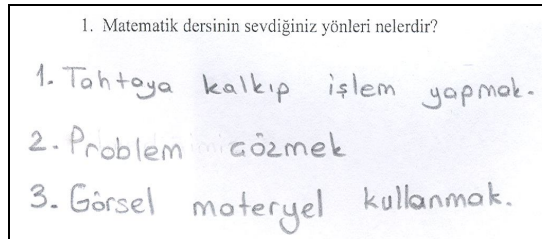 1. Matematik dersinin sevdiğiniz yönleri nelerdir?
1. Tahtaya kalkıp işlem yapmak.
2. Problem çözmek
3. Görsel materyel kullanmak.